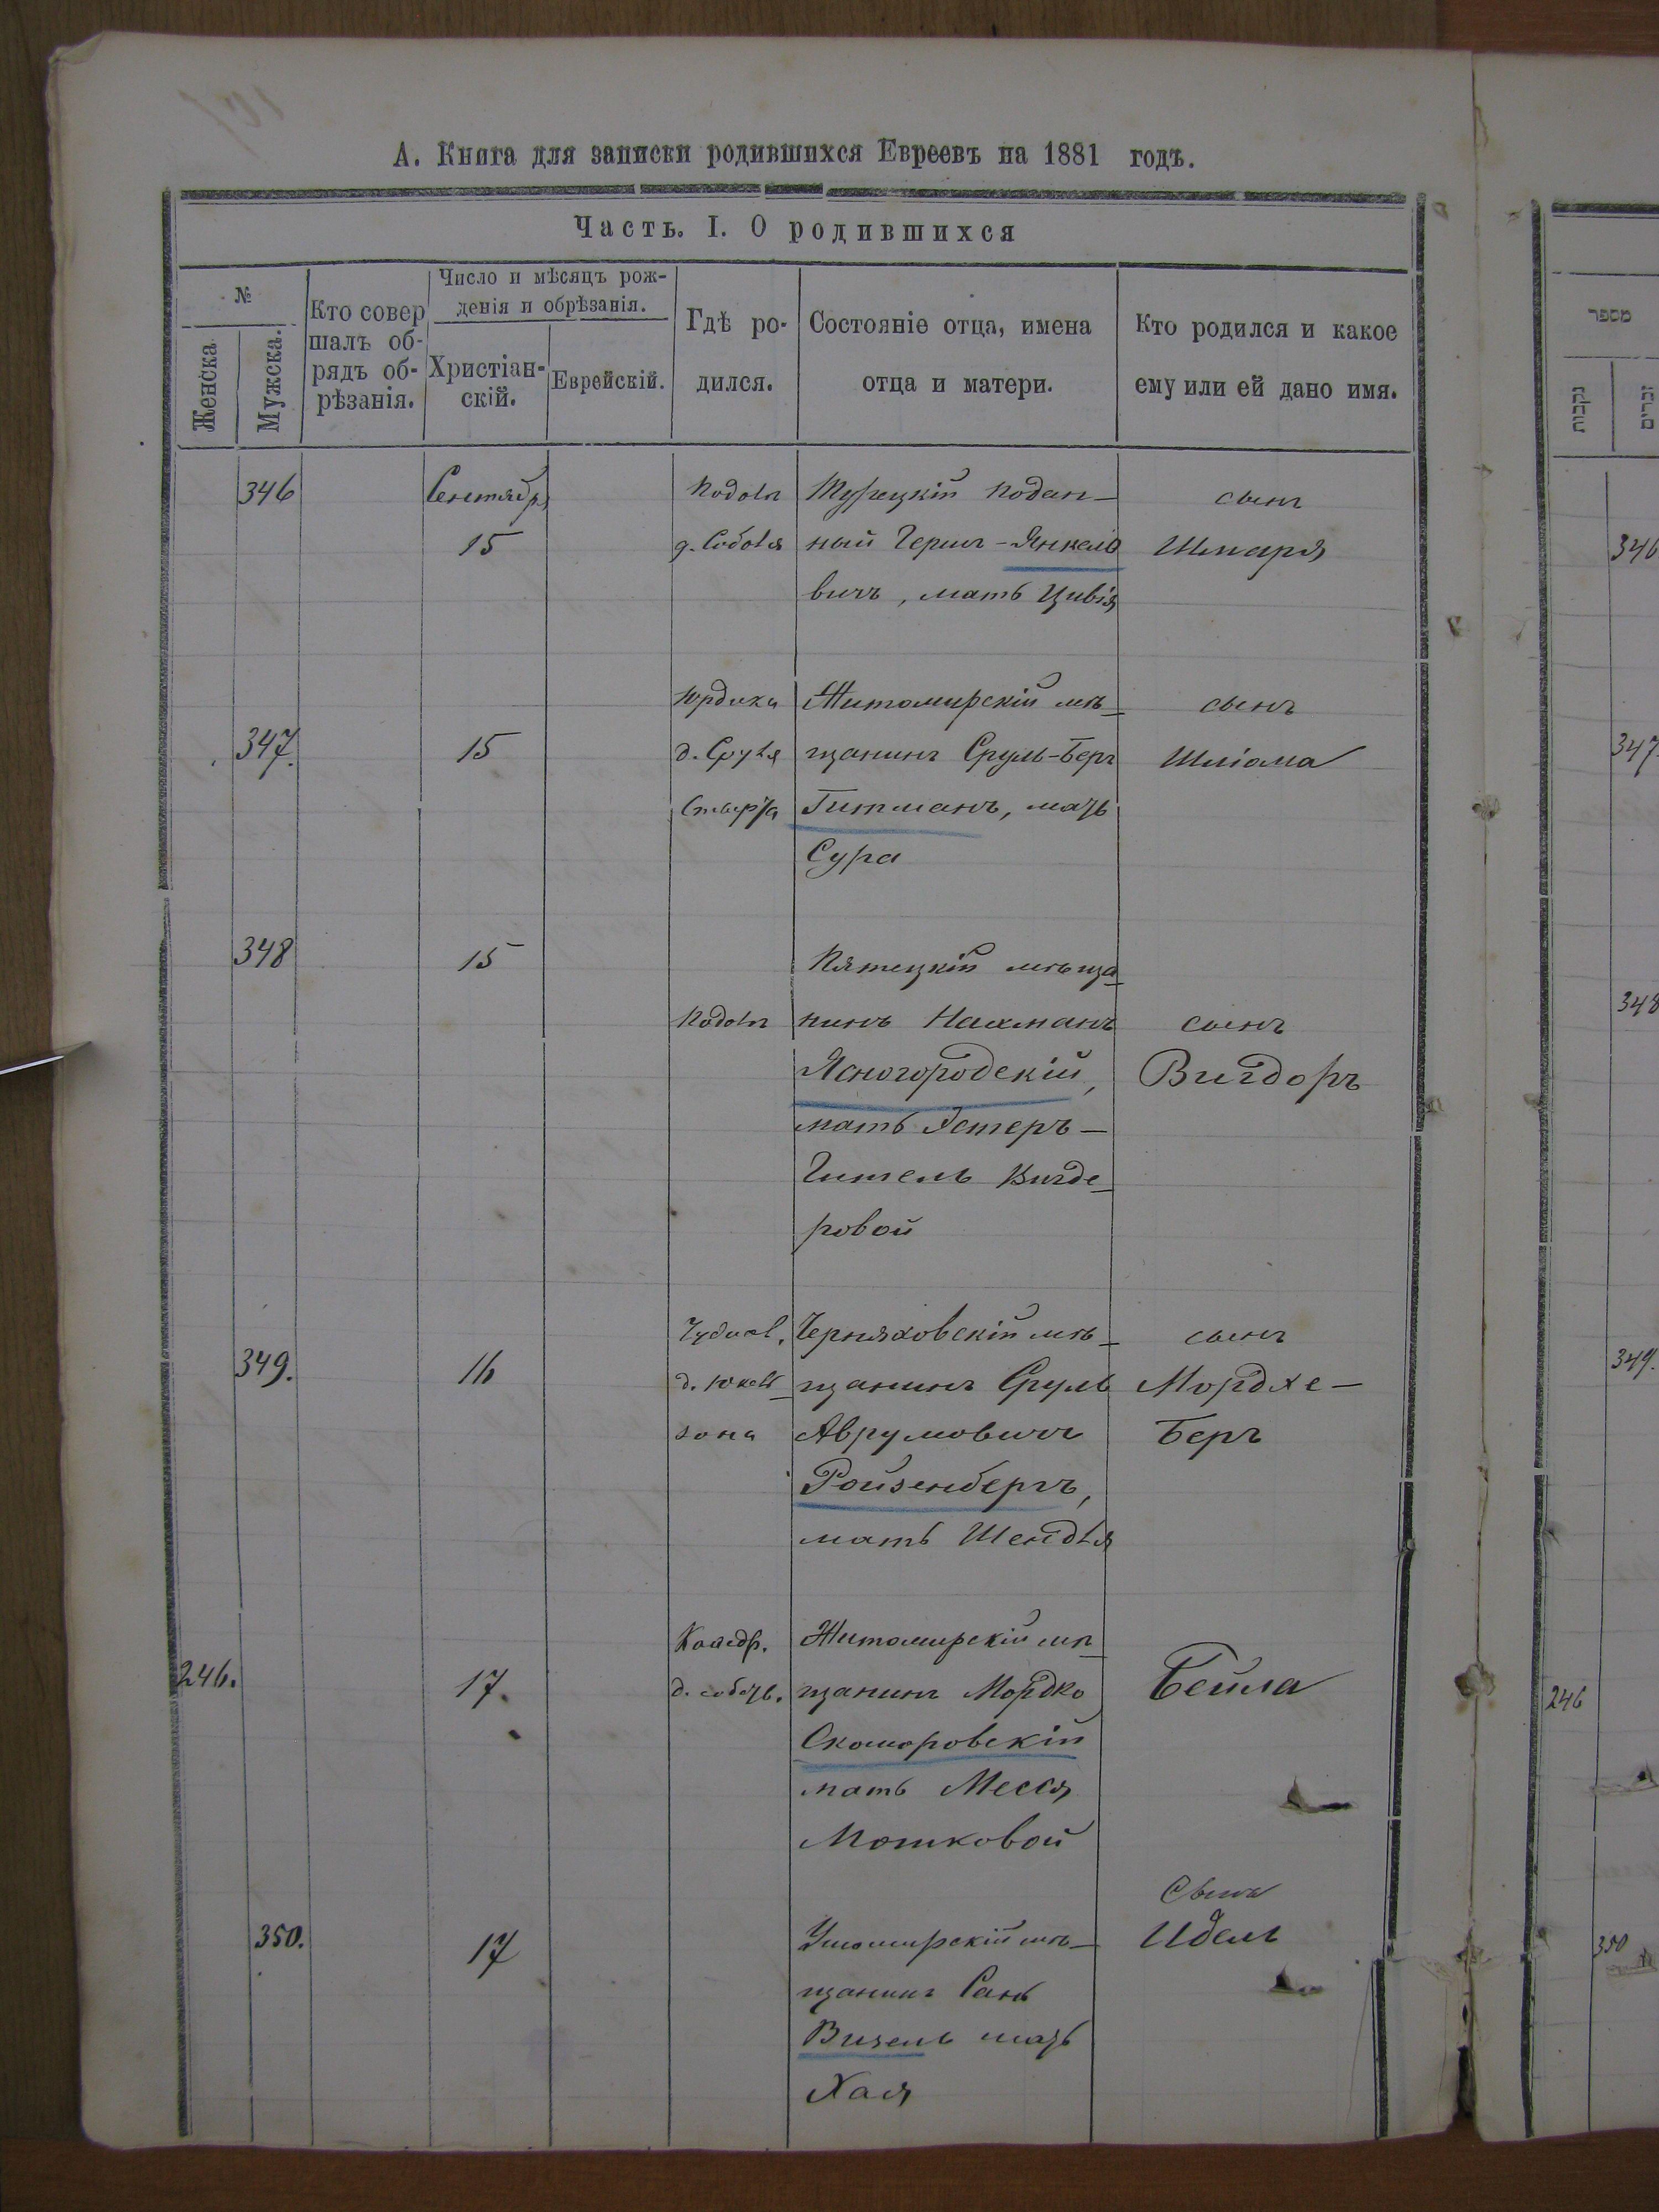 А. Книга для записки родившихся Евреевъ на 1881 годъ.
Часть. I. О родившихся
№
Женска
Мужска.
Кто совер
шалъ об-
рядъ об-
рѣзанія.
Число и мѣсяцъ рож-
денія и обрѣзанія.
Христіан-
скій.
Еврейскій.
Гдѣ ро-
дился.
Состояніе отца, имена
отца и матери.
Кто родился и какое
ему или ей дано имя.
346
Сентября
15
Подолъ
Турецкій подан-
ный Гершъ-Янкело
вичъ, мать Цивія
сынъ
Шмаря
347.
15
Юрдика
Житомирскій мѣ-
щанинъ Сруль-Беръ
Гитманъ, мать
Сура
сынъ
Шліома
348
15
Подолъ
Пятецкій мѣща-
нинъ Нахманъ
Ясногородскій,
мать Эстеръ-
Гитель Вигде-
ровой
сынъ
Вигдоръ
349.
16
Чудновс.
зона
Черняховскій мѣ-
щанинъ Сруль
Аврумовичъ
Ройзенбергъ,
мать Шендля
сынъ
Мордхе-
Беръ
246.
17.
д. собств.
Житомирскій мѣ-
щанинъ Мордко
Скоморовскій
мать Месся
Мошковой
Бейла
350.
17
Ушомирскій мѣ-
щанинъ
Визель мать
Хая
Сынъ
Идель
מספר
נקבות
זכרים
346
347
348
349.
246
350